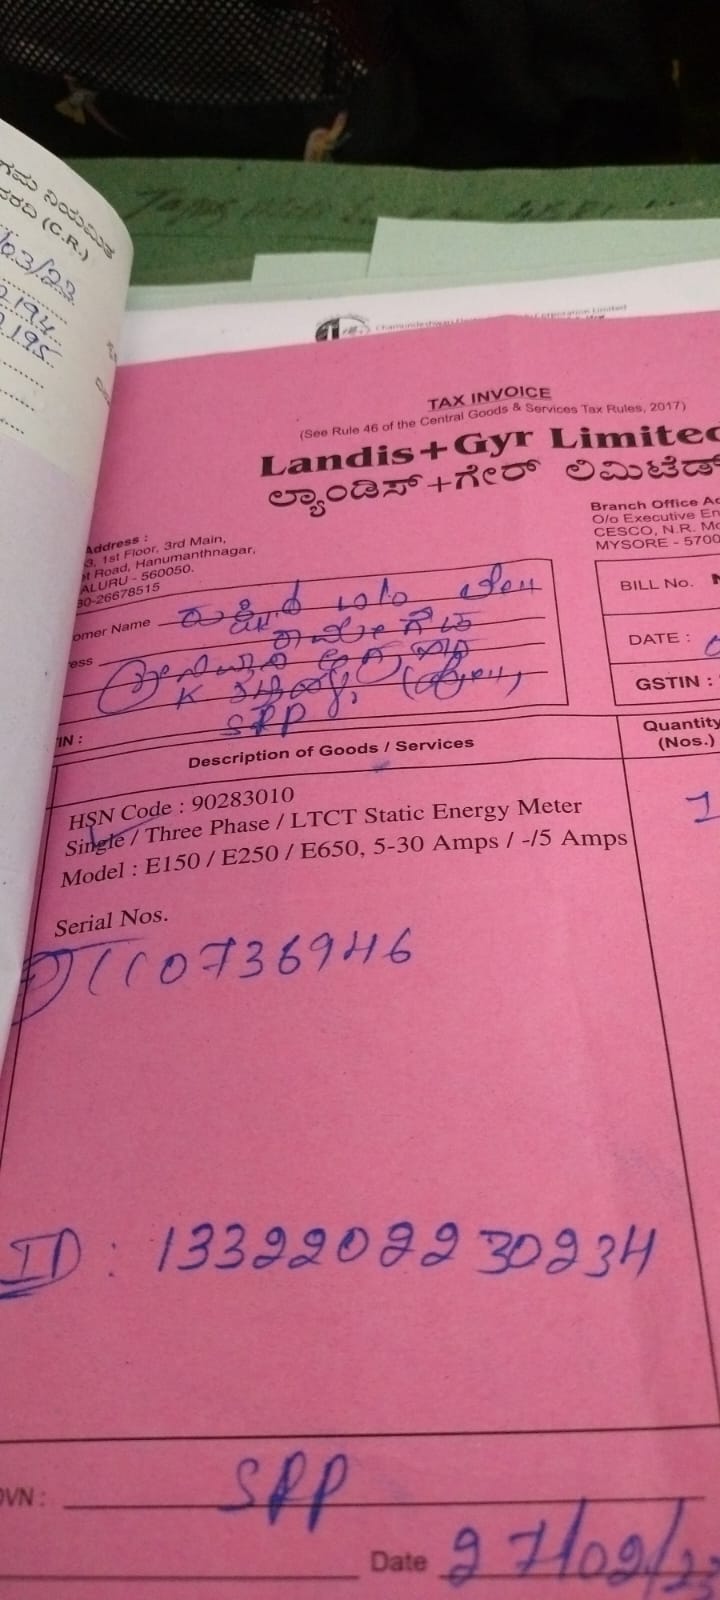 ಗಮ ನಿಯಮಿತ
ವರದಿ (C.R.)
/03/23
2194
2195
Corporation Limited
TAX INVOICE
(See Rule 46 of the Central Goods & Services Tax Rules, 2017)
Landis+Gyr Limited
ಲ್ಯಾಂಡಿಸ್+ಗೇರ್ ಲಿಮಿಟೆಡ್
Address :
3, 1st Floor, 3rd Main,
t Road, Hanumanthnagar,
ALURU - 560050.
30-26678515
Branch Office Ad
O/o Executive En
CESCO, N.R. Mo
MYSORE - 5700
omer Name
ess
K
SPP
IN :
BILL No. N
DATE :
GSTIN :
Description of Goods / Services
Quantity
(Nos.)
HSN Code : 90283010
Single / Three Phase / LTCT Static Energy Meter
Model : E150 / E250 / E650, 5-30 Amps / -/5 Amps
1
Serial Nos.
110736946
ID : 1332202230234
OVN : SPP
Date 27/02/23